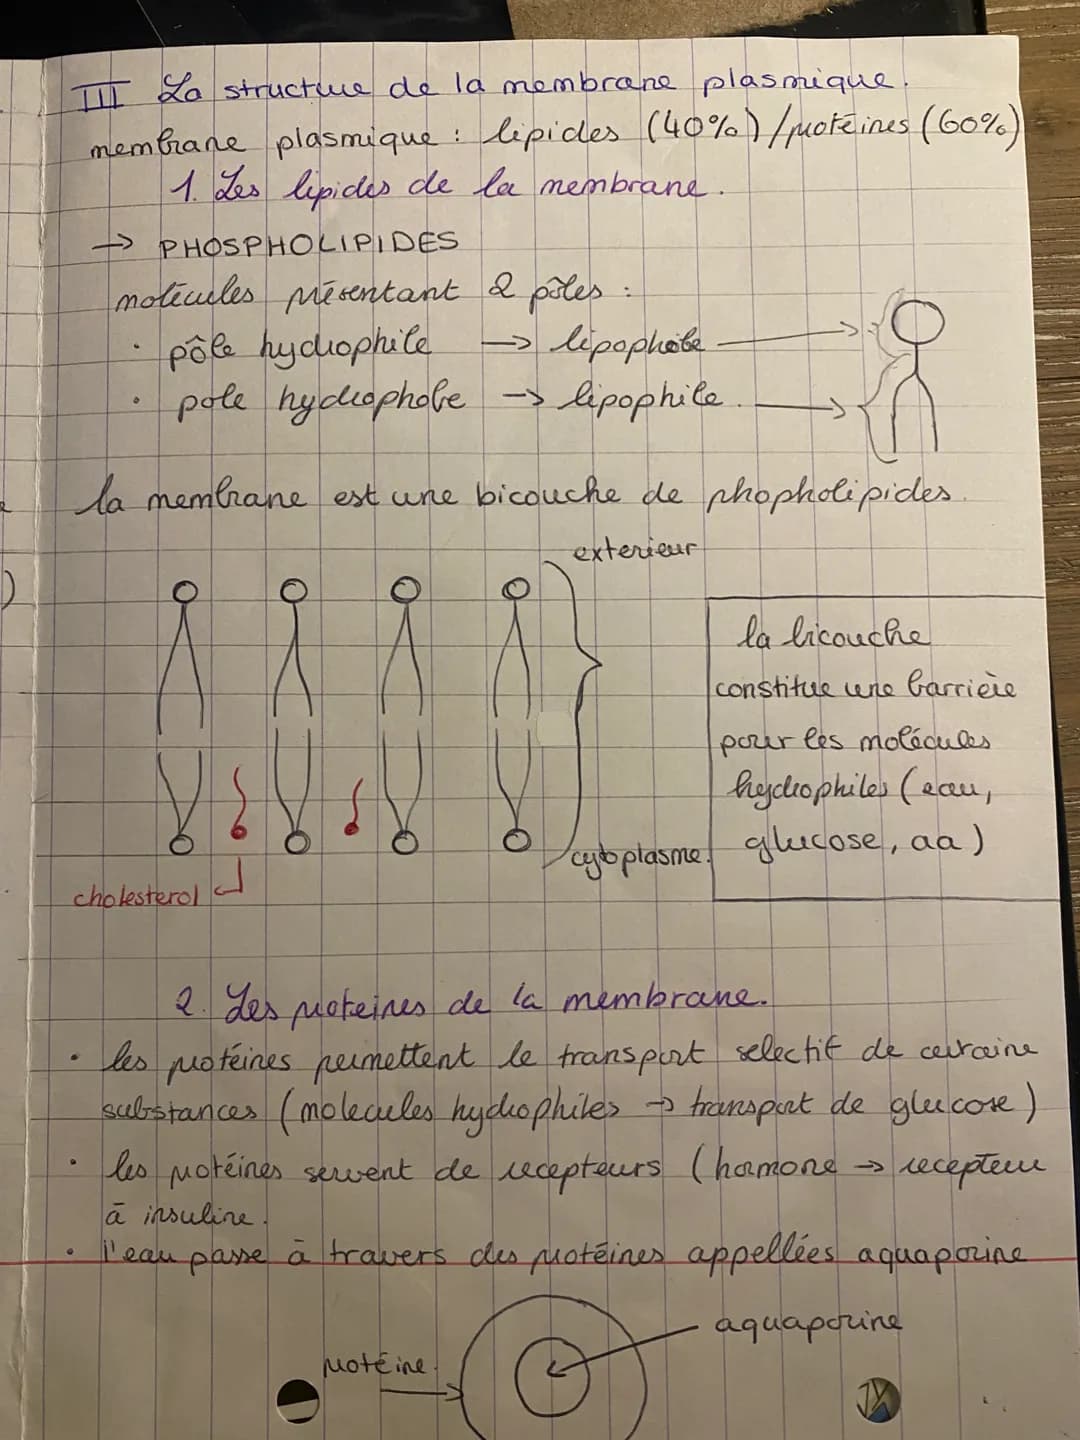 III La structure de la membrane plasmique.
membrane plasmique : lipides (40%) / protéines (60%)
1. Les lipides de la membrane.
→ PHOSPHOLIPIDES
molécules présentant 2 pôles :
· pôle hydrophile → lipophobe
· pole hydrophobe → lipophile.
la membrane est une bicouche de phopholipides.
exterieur
la bicouche
constitue une barrière
pour les molécules
hydrophiles (eau,
glucose, aa)
cytoplasme.
cholesterol
2. Les proteines de la membrane.
· les protéines permettent le transport selectif de certaine
substances (molecules hydrophiles → transport de glucose)
· les protéines servent de recepteurs (hormone → recepteur
à insuline.
· l'eau passe à travers des protéines appellées aquaporine
aquaporine
protéine.